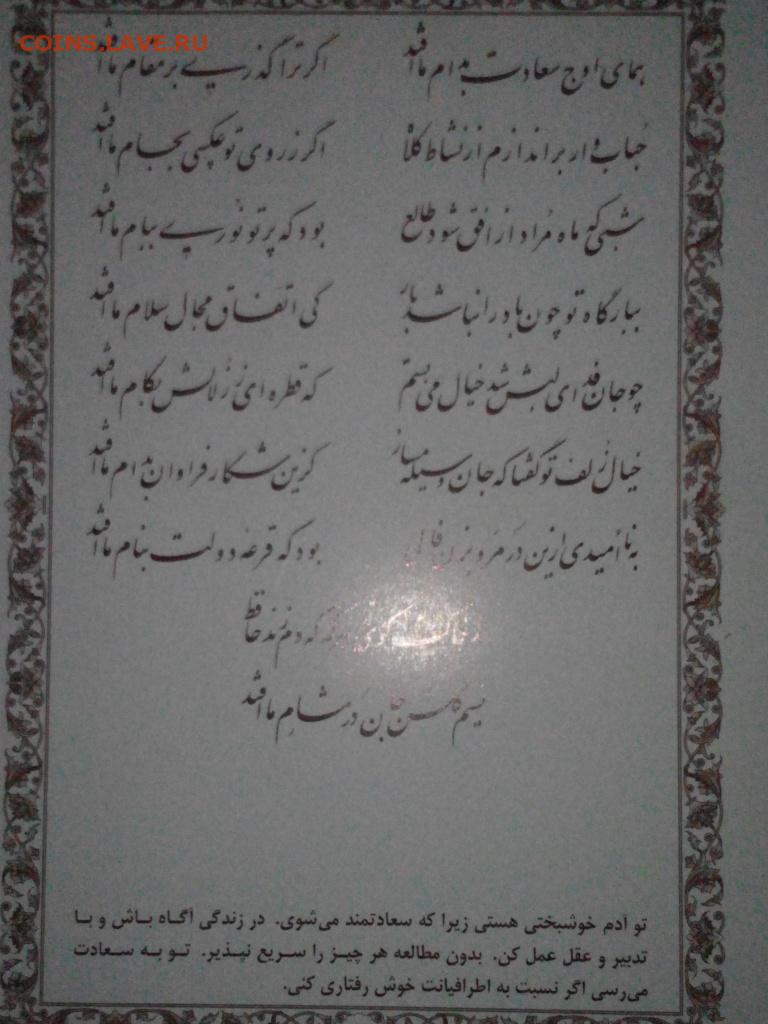 COINS.LAVE.RU
همای اوج سعادت بدام ما افتد اگر ترا گذری بر مقام ما افتد
حباب وار براندازم از نشاط کلاه اگر ز روی تو عکسی بجام ما افتد
شبی که ماه مُراد از افق شود طالع بود که پرتو نوری ببام ما افتد
ببارگاه تو چون باد را نباشد بار کی اتفاق مجال سلام ما افتد
چو جان فدای لبش شد خیال می‌بستم که قطره‌ای ز زُلالش بکام ما افتد
خیال زُلف تو گفتا که جان وسیله مساز کزین شکار فراوان بدام ما افتد
به نا اُمیدی ازین در مرو بزن فالی بود که قرعه دولت بنام ما افتد
که دم زند حافظ
نسیم گلشن جان در مشامِ ما افتد
تو آدم خوشبختی هستی زیرا که سعادتمند می‌شوی. در زندگی آگاه باش و با
تدبیر و عقل عمل کن. بدون مطالعه هر چیز را سریع نپذیر. تو به سعادت
می‌رسی اگر نسبت به اطرافیانت خوش رفتاری کنی.